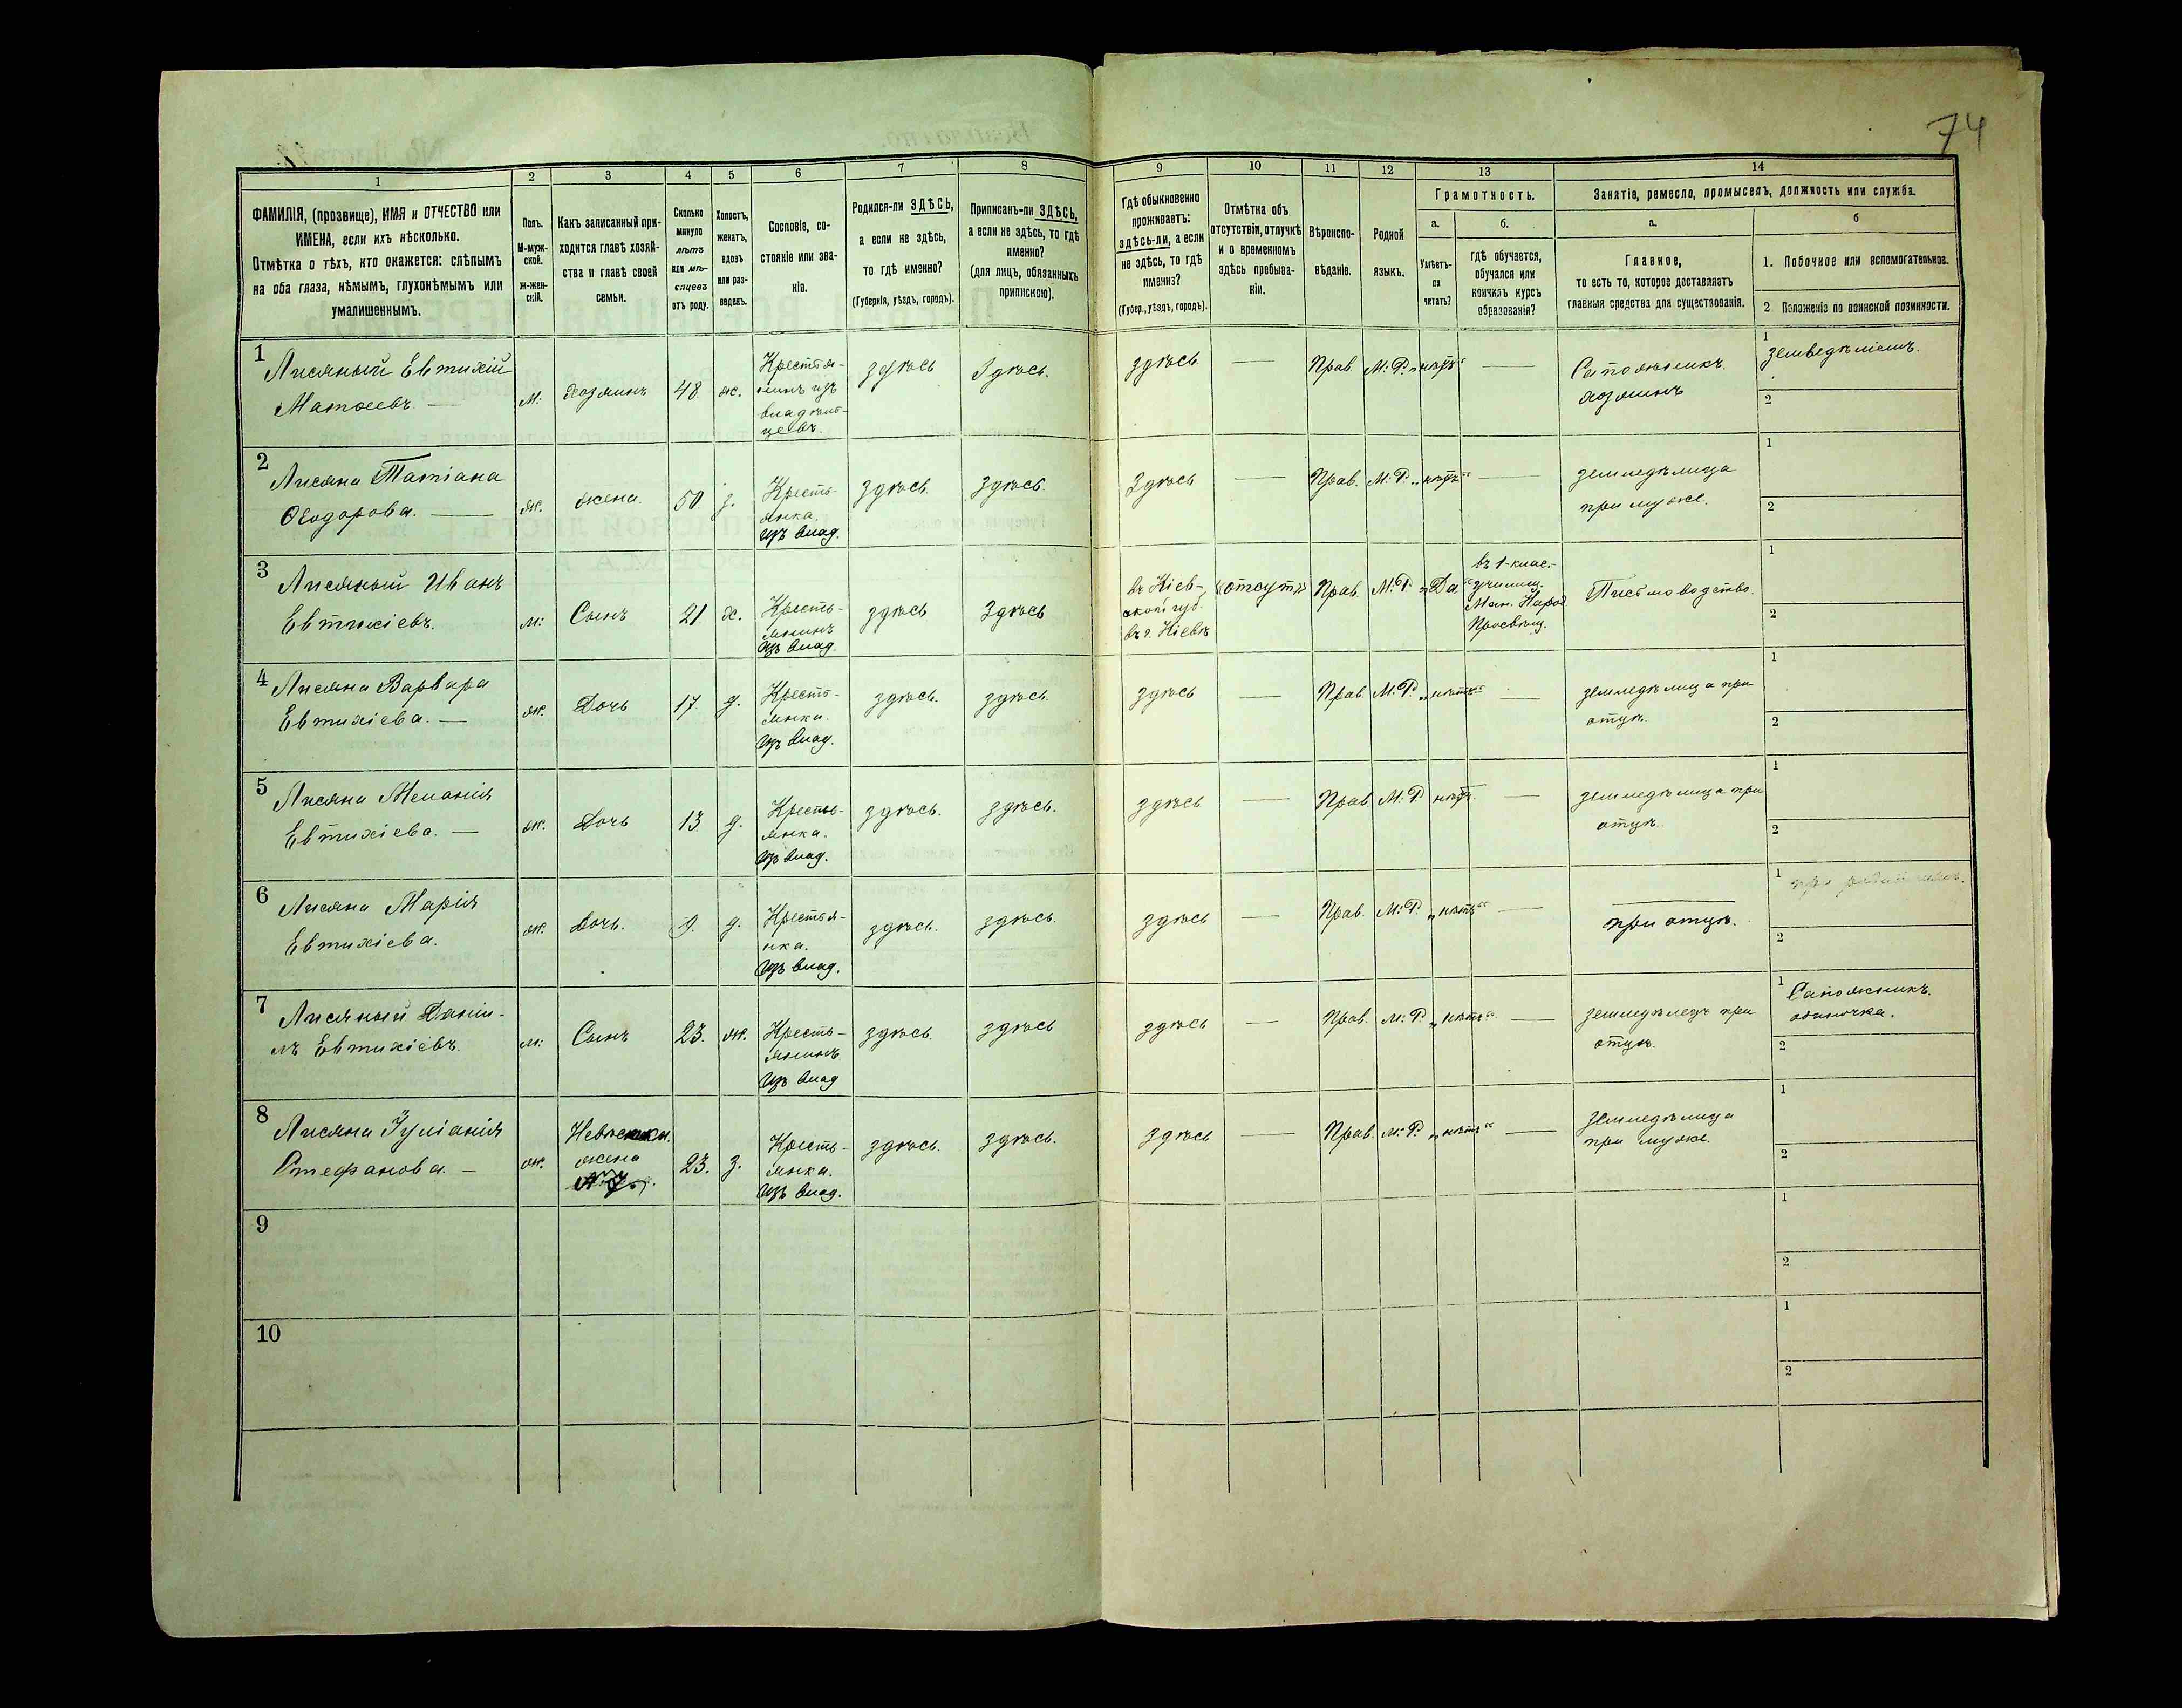 74
1 2 3 4 5 6 7 8 9 10 11 12 13 14
ФАМИЛІЯ, (прозвище), ИМЯ и ОТЧЕСТВО или
ИМЕНА, если ихъ нѣсколько.
Отмѣтка о тѣхъ, кто окажется: слѣпымъ
на оба глаза, нѣмымъ, глухонѣмымъ или
умалишеннымъ.
Полъ.
М-муж-
ской.
ж-жен-
скій.
Какъ записанный при-
ходится главѣ хозяй-
ства и главѣ своей
семьи.
Сколько
минуло
лѣтъ
или мѣ-
сяцевъ
отъ роду.
Холостъ,
женатъ,
вдовъ
или раз-
веденъ.
Сословіе, со-
стояніе или зва-
ніе.
Родился-ли ЗДѢСЬ,
а если не здѣсь,
то гдѣ именно?
(Губернія, уѣздъ, городъ).
Приписанъ-ли ЗДѢСЬ,
а если не здѣсь, то гдѣ
именно?
(для лицъ, обязанныхъ
припискою).
Гдѣ обыкновенно
проживаетъ:
здѣсь-ли, а если
не здѣсь, то гдѣ
именно?
(Губер., уѣздъ, городъ).
Отмѣтка объ
отсутствіи, отлучкѣ
и о временномъ
здѣсь пребыва-
ніи.
Вѣроиспо-
вѣданіе.
Родной
языкъ.
Грамотность.
а.
Умѣетъ-
ли
читать?
б.
гдѣ обучается,
обучался или
кончилъ курсъ
образованія?
Занятіе, ремесло, промыселъ, должность или служба.
а.
Главное,
то есть то, которое доставляетъ
главныя средства для существованія.
б
1. Побочное или вспомогательное.
2. Положеніе по воинской повинности.
1
Лисяный Евтихій
Матѳеевъ. —
м.
хозяинъ
48.
ж.
Крестья-
нинъ изъ
владѣль-
цевъ.
здѣсь
Здѣсь.
здѣсь
—
Прав.
М. Р.
„нѣтъ“
—
Сапожникъ.
хозяинъ
1
земледѣліемъ.
2
2
Лисяна Татіана
Ѳеодорова. —
ж.
жена.
50.
з.
Кресть-
янка.
изъ влад.
здѣсь.
здѣсь.
Здѣсь
—
Прав.
М. Р.
„нѣтъ“
—
земледѣлица
при мужѣ.
1
2
3
Лисяный Иванъ
Евтихіевъ.
м.
Сынъ
21
х.
Кресть-
янинъ
изъ влад.
здѣсь
Здѣсь
въ Кіев-
ской губ.
въ г. Кіевѣ
«отсут»
Прав.
М. Р.
„Да“
въ 1-клас.
училищ.
Мин. Народ
Просвѣщ.
Письмоводство.
1
2
4
Лисяна Варвара
Евтихіева. —
ж.
Дочь
17
д.
Кресть-
янка.
изъ влад.
здѣсь.
здѣсь.
здѣсь
—
Прав.
М. Р.
„нѣтъ“
—
земледѣлица при
отцѣ.
1
2
5
Лисяна Меланія
Евтихіева. —
ж.
Дочь
13
д.
Кресть-
янка.
изъ влад.
здѣсь.
здѣсь.
здѣсь
—
Прав.
М. Р.
нѣтъ.
—
земледѣлица при
отцѣ.
1
2
6
Лисяна Марія
Евтихіева.
ж.
Дочь.
9.
д.
Крестья-
нка.
изъ влад.
здѣсь.
здѣсь.
здѣсь
—
Прав.
М. Р.
„нѣтъ“
—
при отцѣ.
1
при
2
7
Лисяный Даніи-
лъ Евтихіевъ.
м.
Сынъ
23.
ж.
Кресть-
янинъ
изъ влад
здѣсь.
здѣсь
здѣсь
—
Прав.
М. Р.
„нѣтъ“
—
земледѣлецъ при
отцѣ.
1
Сапожникъ.
одиночка.
2
8
Лисяна Іуліанія
Стефанова. —
ж.
Невѣстка.
жена
№7.
23.
з.
Кресть-
янка.
изъ влад.
здѣсь.
здѣсь.
здѣсь
—
Прав.
М. Р.
„нѣтъ“
—
Земледѣлица
при мужѣ.
1
2
9
1
2
10
1
2